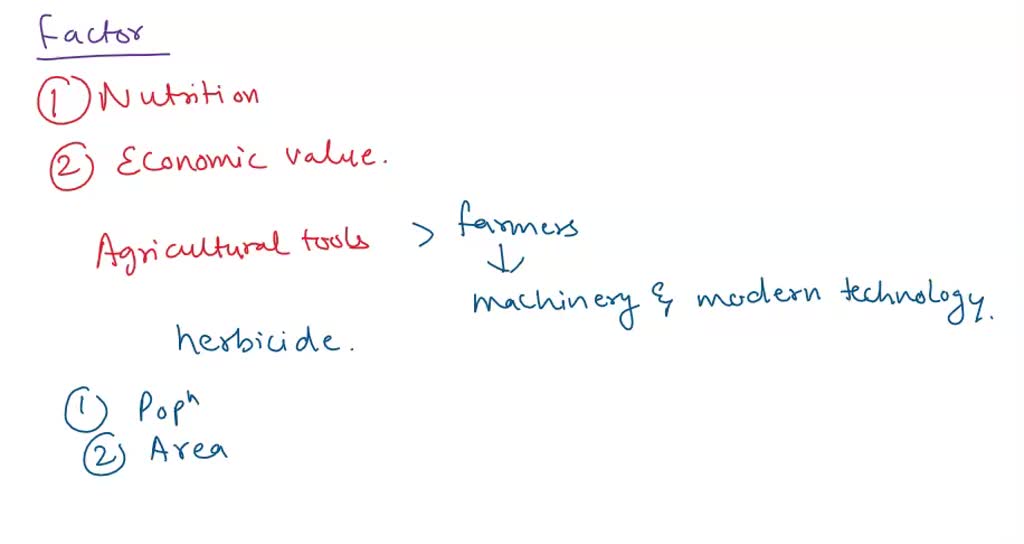 Factor
① Nutrition
② Economic value.
Agricultural tools > farmers
↓
machinery & modern technology.
herbicide.
① Popⁿ
② Area